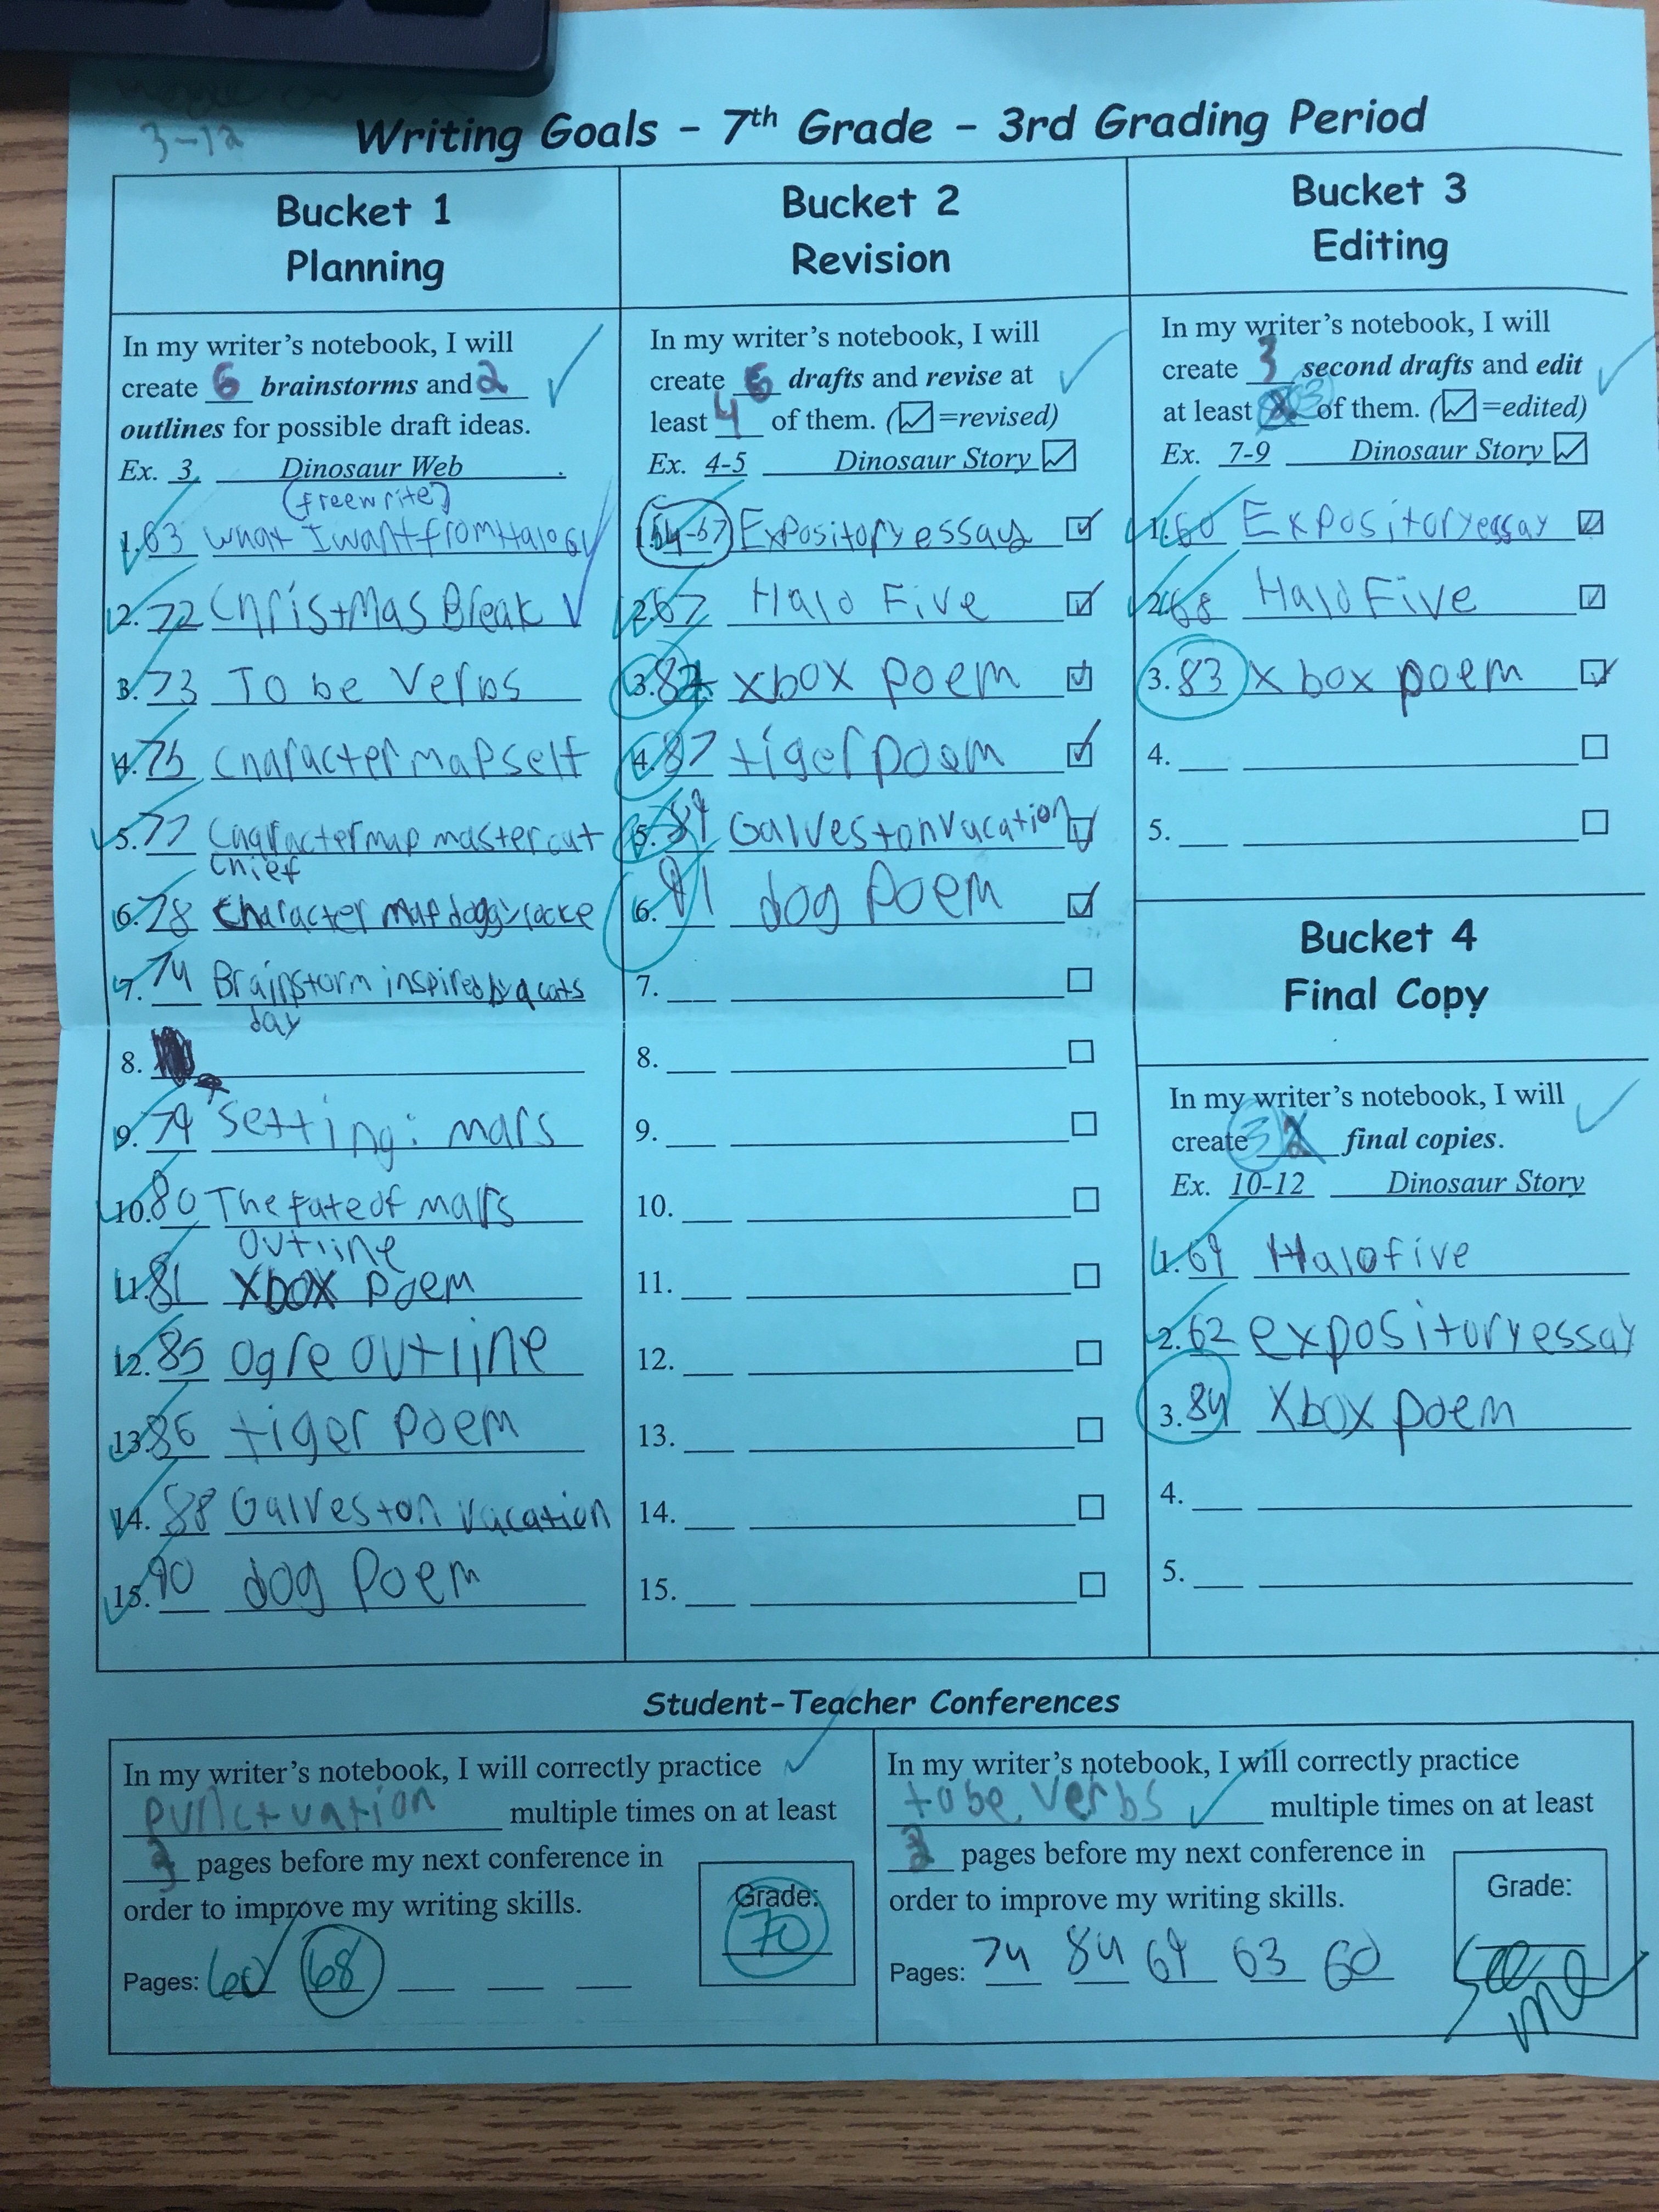 3-12
Writing Goals - 7th Grade - 3rd Grading Period
Bucket 1
Planning
In my writer's notebook, I will
create 6 brainstorms and 2
outlines for possible draft ideas.
Ex. 3 Dinosaur Web .
(freewrite)
1. 63 What I want from Halo 6
2. 72 Christmas Break
3. 73 To be Verbs
4. 75 Character map self
5. 77 Character map master cut
chief
6. 78 Character map doggy
7. 74 Brainstorm inspired by a cats
day
8.
9. 79 Setting: mars
10. 80 The fate of mars
outline
11. 81 xbox poem
12. 85 ogre outline
13. 86 tiger poem
14. 88 Galveston vacation
15. 90 dog poem
Bucket 2
Revision
In my writer's notebook, I will
create 6 drafts and revise at
least 4 of them. (=revised)
Ex. 4-5 Dinosaur Story
1. 54-57 Expository essay
2. 67 Halo Five
3. 82 xbox poem
4. 87 tiger poem
5. 89 Galveston vacation
6. 91 dog poem
7.
8.
9.
10.
11.
12.
13.
14.
15.
Bucket 3
Editing
In my writer's notebook, I will
create 3 second drafts and edit
at least 3 of them. (=edited)
Ex. 7-9 Dinosaur Story
1. 60 Expository essay
2. 68 Halo Five
3. 83 xbox poem
4.
5.
Bucket 4
Final Copy
In my writer's notebook, I will
create 3 2 final copies.
Ex. 10-12 Dinosaur Story
1. 69 Halo five
2. 62 expository essay
3. 84 Xbox poem
4.
5.
Student-Teacher Conferences
In my writer's notebook, I will correctly practice
punctuation multiple times on at least
pages before my next conference in
order to improve my writing skills.
Grade:
70
Pages: 60 68
In my writer's notebook, I will correctly practice
to be verbs multiple times on at least
pages before my next conference in
order to improve my writing skills.
Grade:
See
me
Pages: 74 84 69 63 60